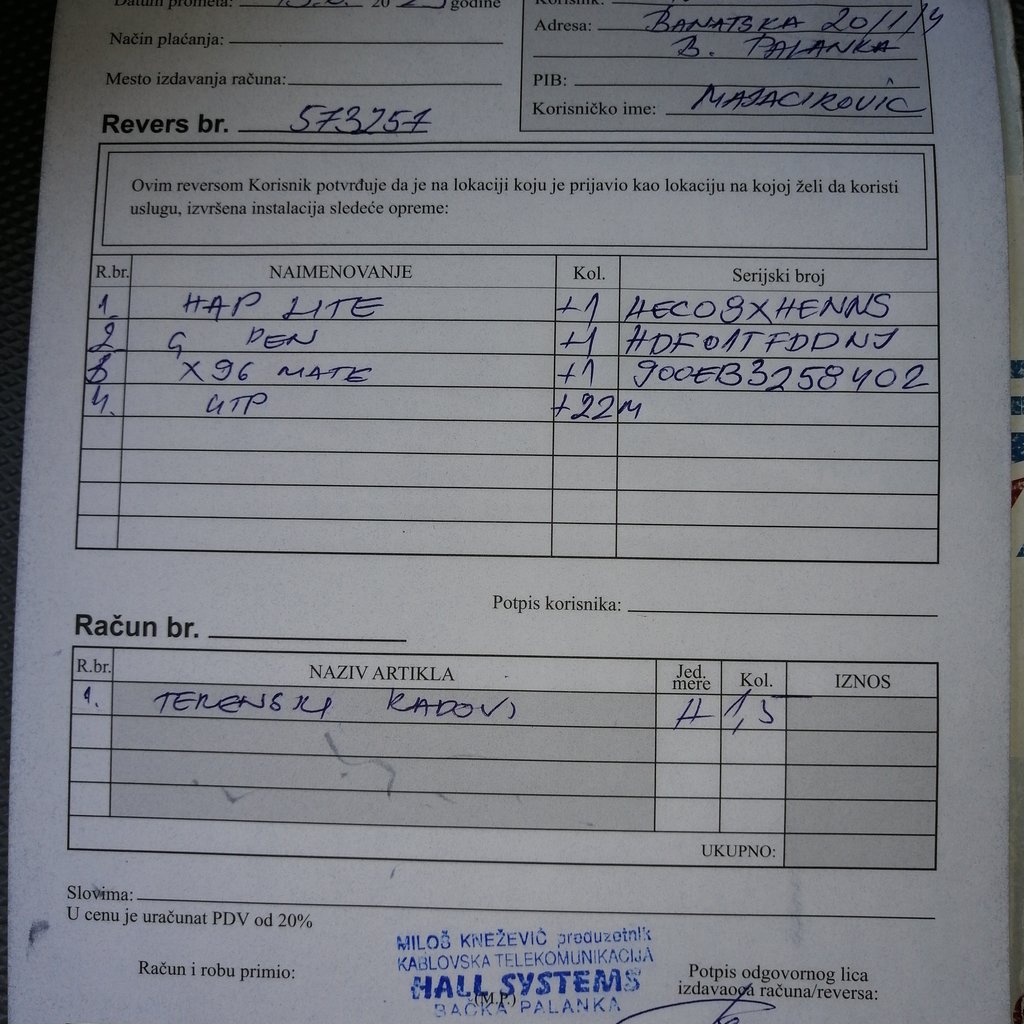 Datum prometa: 20 godine
Korisnik:
Adresa: BANATSKA 20/1/4
B. PALANKA
Način plaćanja:
Mesto izdavanja računa:
PIB:
Korisničko ime: MAJACIROVIC
Revers br. 573257
Ovim reversom Korisnik potvrđuje da je na lokaciji koju je prijavio kao lokaciju na kojoj želi da koristi
uslugu, izvršena instalacija sledeće opreme:
R.br. NAIMENOVANJE Kol. Serijski broj
1. HAP LITE +1 HEC08XHENNS
2 G PEN +1 HDF01TFDDNJ
3 X96 MATE +1 900EB3258402
4. UTP +22M
Potpis korisnika:
Račun br.
R.br. NAZIV ARTIKLA Jed. mere Kol. IZNOS
1. TERENSKI RADOVI H 1,5
UKUPNO:
Slovima:
U cenu je uračunat PDV od 20%
MILOŠ KNEŽEVIĆ preduzetnik
KABLOVSKA TELEKOMUNIKACIJA
HALL SYSTEMS
(M.P.)
BAČKA PALANKA
Račun i robu primio:
Potpis odgovornog lica
izdavaoca računa/reversa: